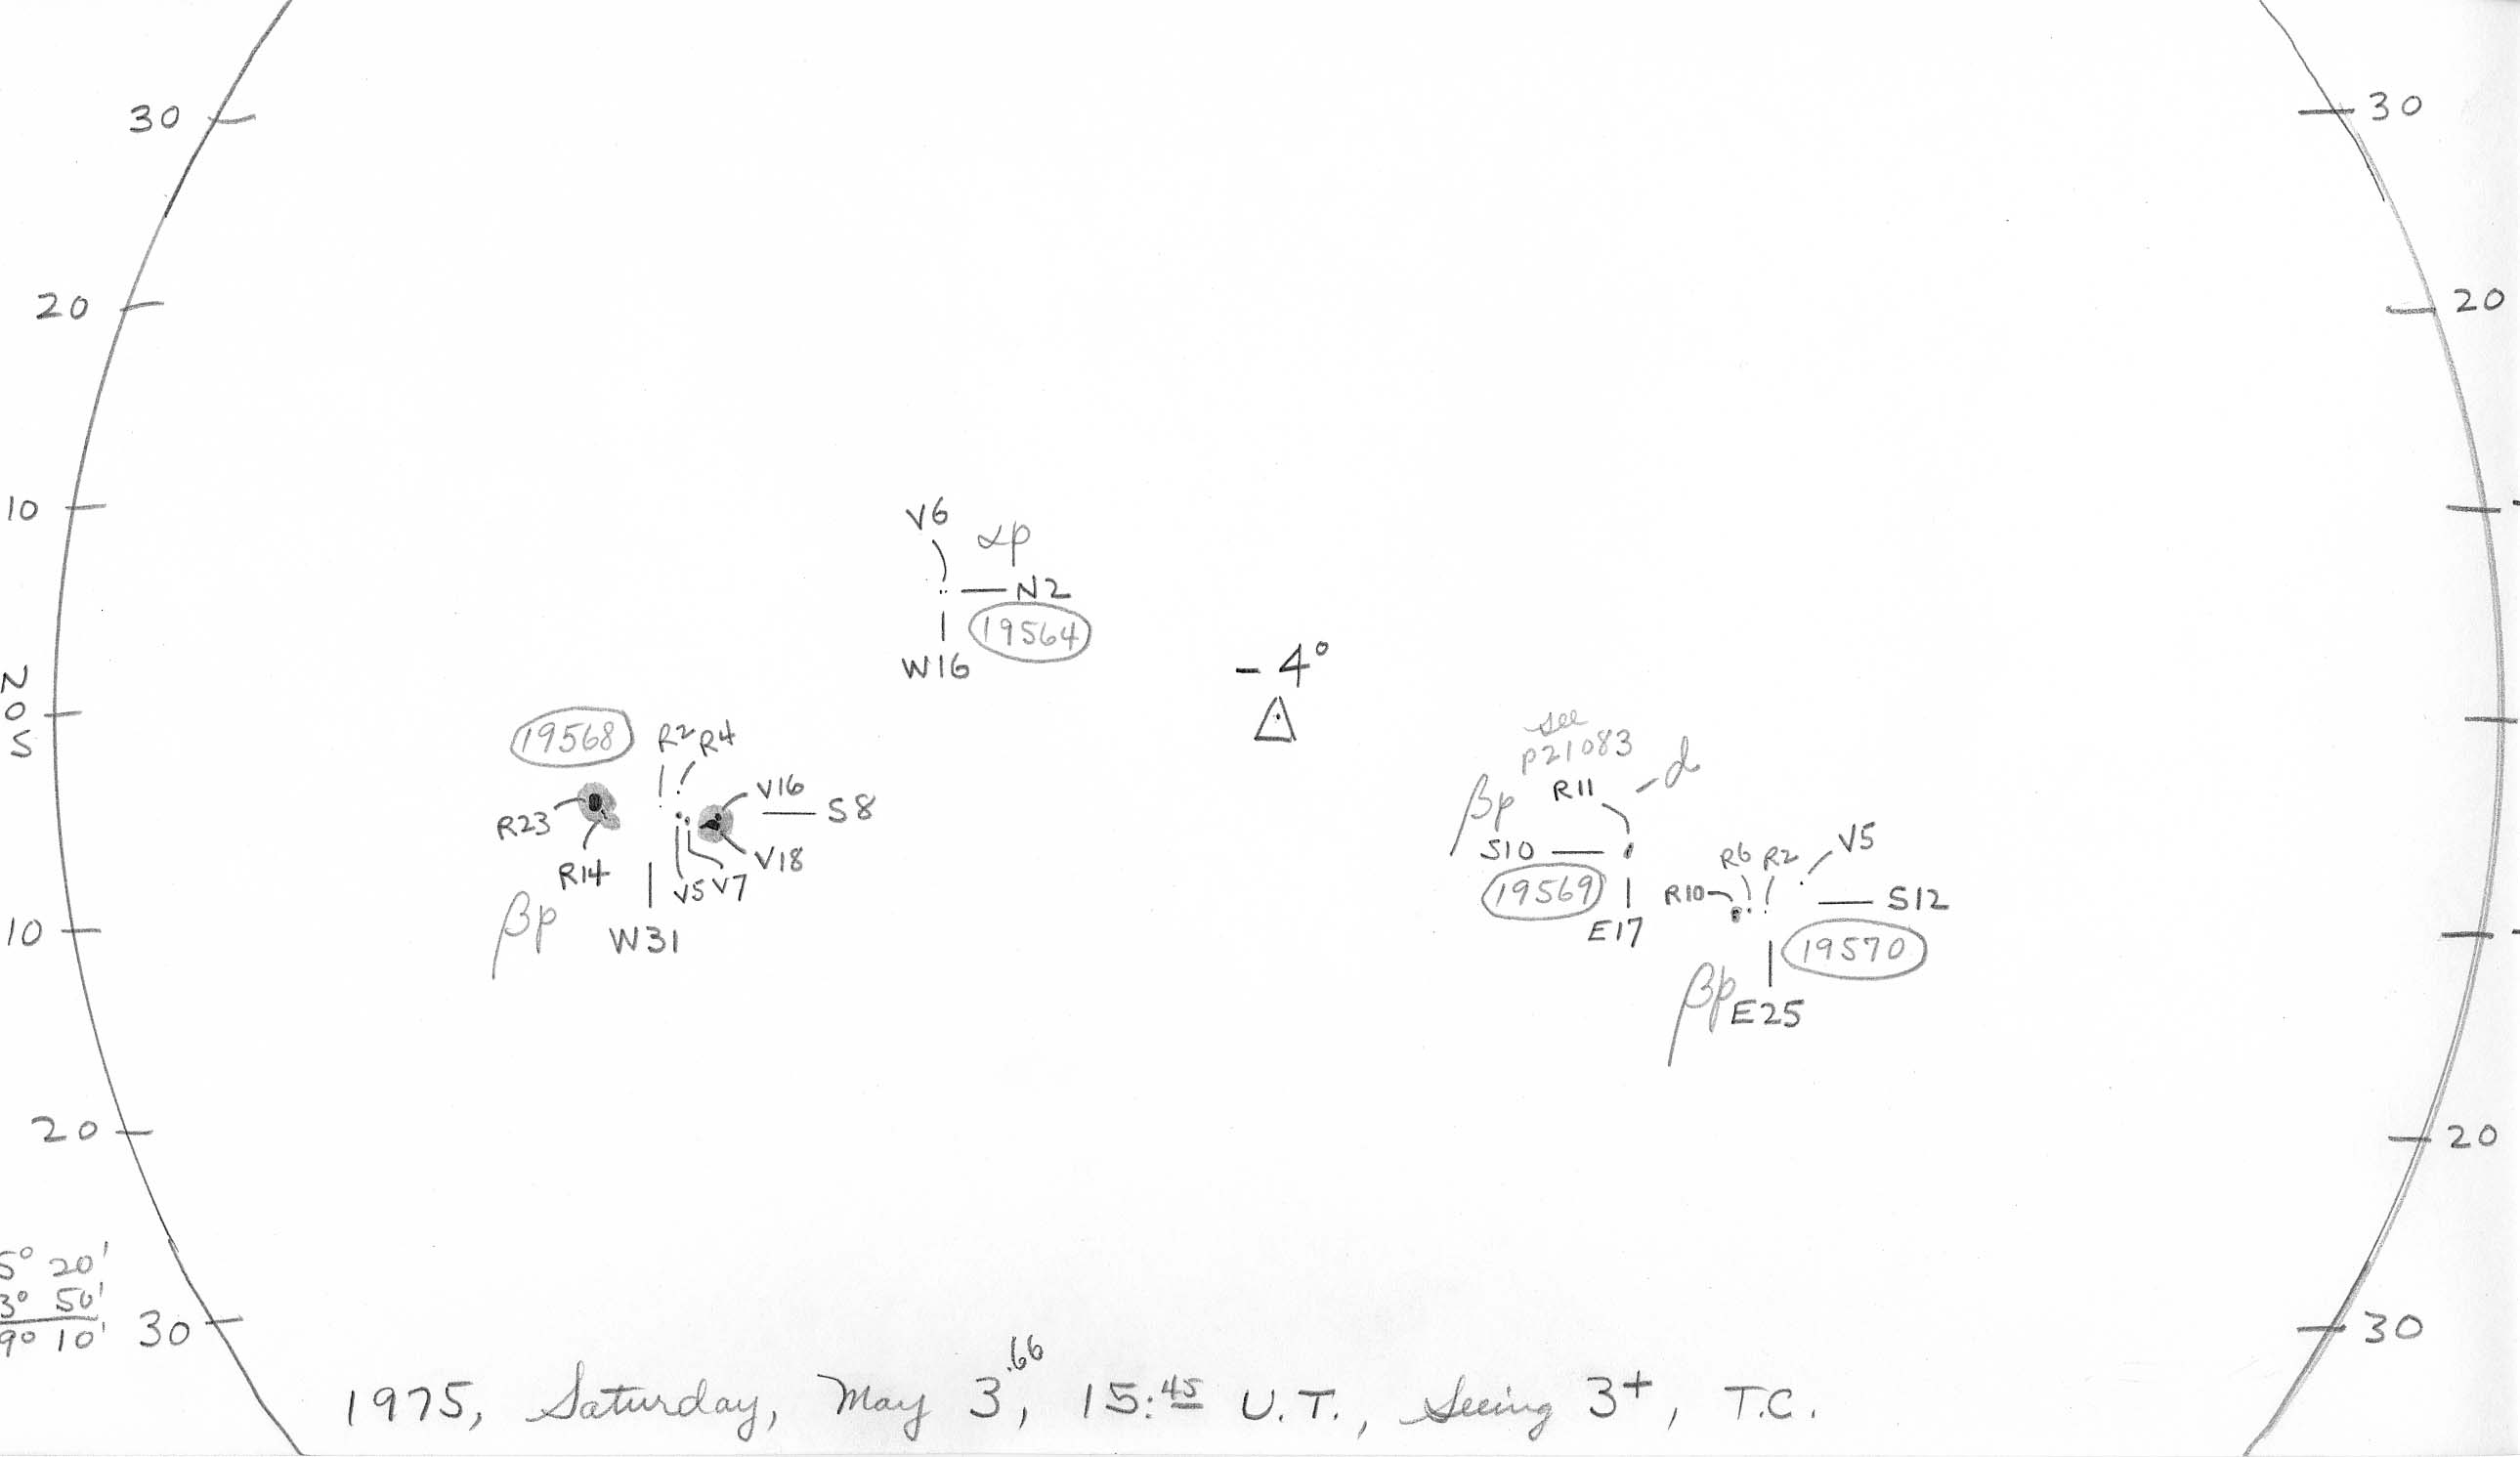 30
30
20
20
10
V6
αp
N2
19564
W16
-4°
N
0
S
19568
R2 R4
V16
S8
R23
V18
R14
V5 V7
βp
W31
see
p21083
d
R11
βp
S10
19569
E17
V5
R6 R2
R10
S12
19570
βp
E25
10
20
20
5° 20'
3° 50'
9° 10'
30
30
1975, Saturday, May 3.66, 15:45 U.T., Seeing 3+, T.C.